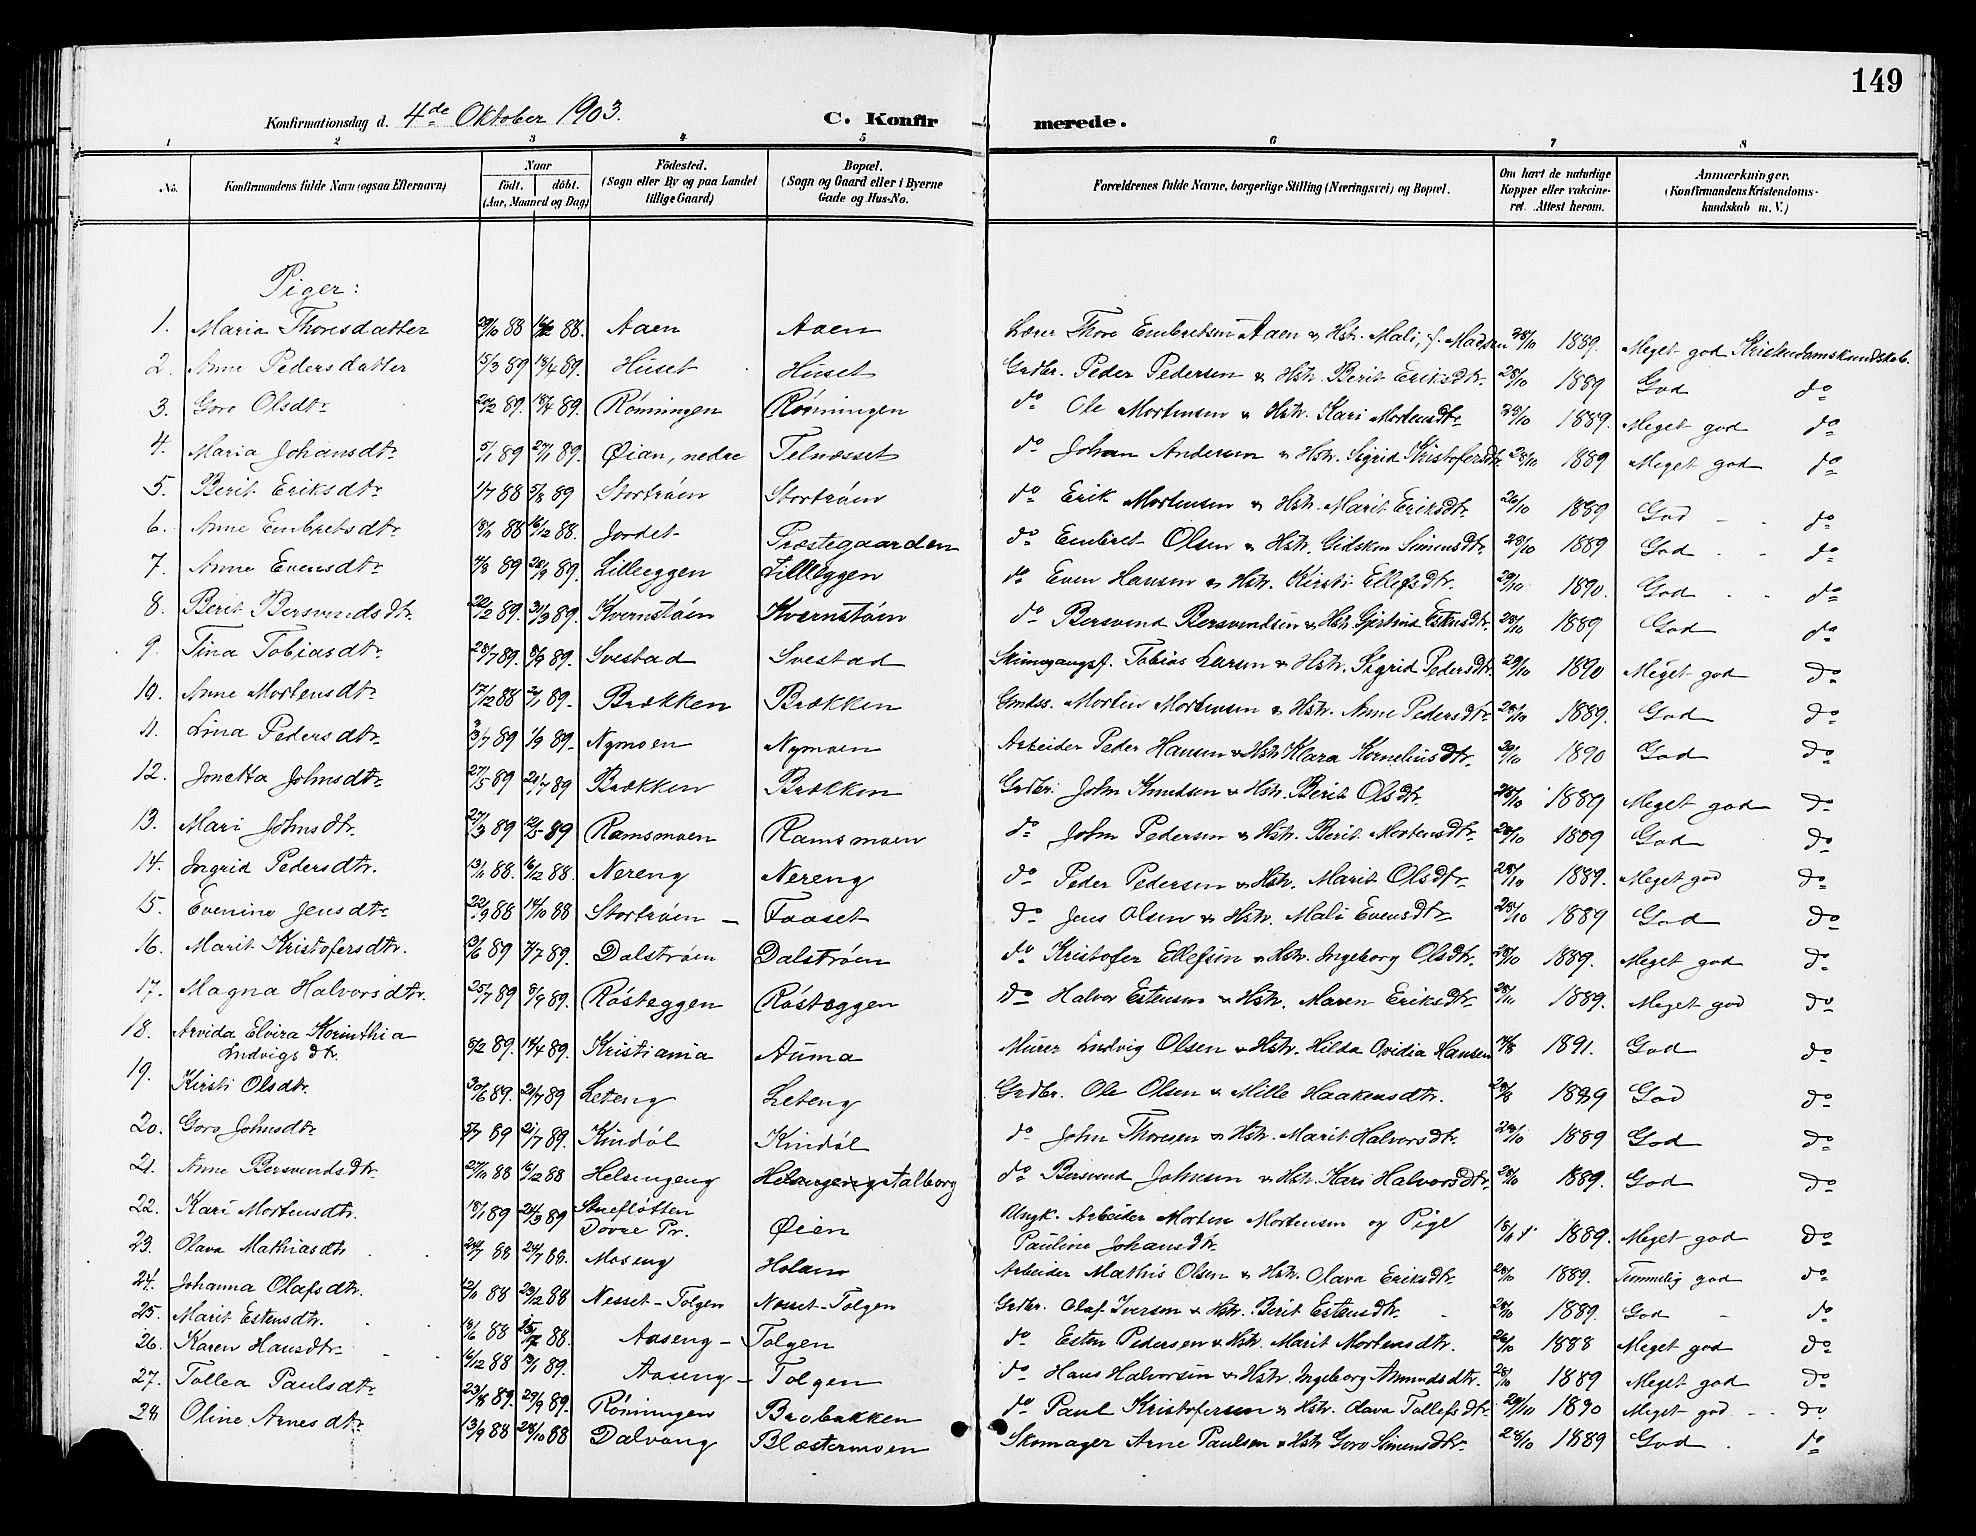 149
Konfirmationsdag d. 4de Oktober 1903.
C. Konfir
merede.
1 2 3 4 5 6 7 8
No. Konfirmandens fulde Navn (ogsaa Efternavn) Naar födt. döbt. (Aar, Maaned og Dag) Födested. (Sogn eller By og paa Landet tillige Gaard) Bopæl. (Sogn og Gaard eller i Byerne Gade og Hus-No. Forældrenes fulde Navne, borgerlige Stilling (Næringsvei) og Bopæl. Om havt de naturlige Kopper eller vakcineret. Attest herom. Anmærkninger. (Konfirmandens Kristendomskundskab m. V.)
Piger:
1. Maria Thoresdatter 29/10 88 88. Aaen Aaen Lærer Thore Embretsen Aaen & Hstr. Mali, f. Madsen 28/10 1889. Meget god Kristendomskundskab.
2. Anne Pedersdatter 15/3 89 13/4 89. Huset Huset Grdbr. Peder Pedersen & Hstr. Berit Eriksdtr. 28/10 1889 God do
3. Goro Olsdtr 20/2 89. 89. Rönningen Rönningen do Ole Mortensen & Hstr. Kari Mortensdtr. 28/10 1889. Meget god do
4. Maria Johansdtr 5/1 89 27/1 89. Øian, nedre Telnæsset do Johan Andersen & Hstr. Sigrid Kristofersdtr 28/10 1889 Meget god do
5. Berit Eriksdtr 1/7 88 5/8 89 Stortröen Stortröen do Erik Mortensen & Hstr. Marit Eriksdtr. 26/10 1889 God do
6. Anne Embretsdtr 18/11 88 16/12 88. Jordet Præstegaarden do Embret Olsen & Hstr. Gidsken Simensdtr. 28/10 1889 God do
7. Anne Evensdtr 4/8 89 89. Lilleeggen Lilleeggen do Even Hansen & Hstr. Kirsti Ellefsdtr. 29/10 1890. God do
8. Berit Bersvendsdtr. 20/2 89. 31/3 89 Kvernstöen Kvernstöen do Bersvend Bersvendsen & Hstr. Gjertrud Eskesdtr. 28/10 1889 God do
9. Tina Tobiasdtr. 28/7 89. 8/9 89. Svestad Svestad Tobias Larsen & Hstr. Sigrid Pedersdtr. 29/10 1890 Meget god do
10. Anne Mortensdtr 17/12 88 2/1 89. Brækken Brækken Morten Mortensen & Hstr. Anne Pedersdtr 28/10 1889. God do
11. Lina Pedersdtr. 3/7 89 1/9 89. Nymoen Nymoen Arbeider Peder Hansen & Hstr Klara Korneliusdtr. 29/10 1890 God do
12. Jonetta Johnsdtr. 27/5 89 21/7 89 Brækken Brækken Grdbr. John Knudsen & Hstr. Berit Olsdtr. 28/10 1889 Meget god do
13. Mari Johnsdtr. 27/3 89 12/5 89 Ramsmoen Ramsmoen do John Pedersen & Hstr. Berit Mortensdtr. 28/10 1889 God do
14. Ingrid Pedersdtr. 13/11 88. 16/12 88. Nereng Nereng do Peder Pedersen & Hstr. Marit Olsdtr. 28/10 1889. Meget god do
15. Evenine Jensdtr 22/9 88 14/10 88 Stortröen Faaset do Jens Olsen & Hstr. Mali Evensdtr 28/10 1889 God do
16. Marit Kristofersdtr. 89 7/7 89. Dalströen Dalströen do Kristofer Ellefsen & Hstr. Ingeborg Olsdtr. 28/10 1889. Meget god do
17. Magna Halvorsdtr. 25/7 89 8/9 89. Rösteggen Rösteggen do Halvor Estensen & Hstr. Maren Eriksdtr 1889. Meget god do
18. Arvida Elvira Korinthia Ludvigsdtr. 5/2 89. 14/4 89. Kristiania Auma Murer Ludvig Olsen & Hstr. Hilda Ovidia Hansen 1891. God do
19. Kirsti Olsdtr. 30/6 89. 21/7 89 Leteng Leteng Grdbr. Ole Olsen & Mille Haakensdtr. 1889 God do
20. Goro Johnsdtr 89 21/7 89. Kindöl Kindöl do John Thoresen & Hstr. Marit Halvorsdtr. 28/10 1889 God do
21. Anne Bersvendsdtr. 27/10 88 16/12 88 Helsingeng Helsingeng Aalborg do Bersvend Johnsen & Hstr. Kari Halvorsdtr. 28/10 1889. God do
22. Kari Mortensdtr. 18/1 89 24/3 89 Dovre Pr. Øien Ungk. Arbeider Morten Mortensen og Pige Pauline Johansdtr. 1889. Meget god do
23. Olava Mathiasdtr 88 88. Moseng Holan Arbeider Mathis Olsen & Hstr. Olava Eriksdtr. 28/10 1889. Temmelig god do
24. Johanna Olafsdtr. 12/11 88 23/12 88 Nesset-Tolgen Nesset-Tolgen Grdbr. Olaf Iversen & Hstr. Berit Estensdtr. 1889. God do
25. Marit Estensdtr. 88 88. Aaseng - Tolgen do Esten Pedersen & Hstr. Marit Mortensdtr. 26/10 1888 Meget god do
26. Karen Hansdtr 16/12 88 13/1 89. Aaseng - Tolgen do Hans Halvorsen & Hstr. Ingeborg Amundsdtr. 28/10 1889 Meget god do
27. Tollea Paulsdtr. 23/8 89. 29/9 89. Rönningen Brobakken do Paul Kristofersen & Hstr. Olava Tollefsdtr. 29/10 1890 Meget god do
28 Oline Arnesdtr. 13/9 88 28/10 88 Dalvang Blæstermoen Skomager Arne Paulsen & Hstr Goro Simensdtr. 28/10 1889 God do